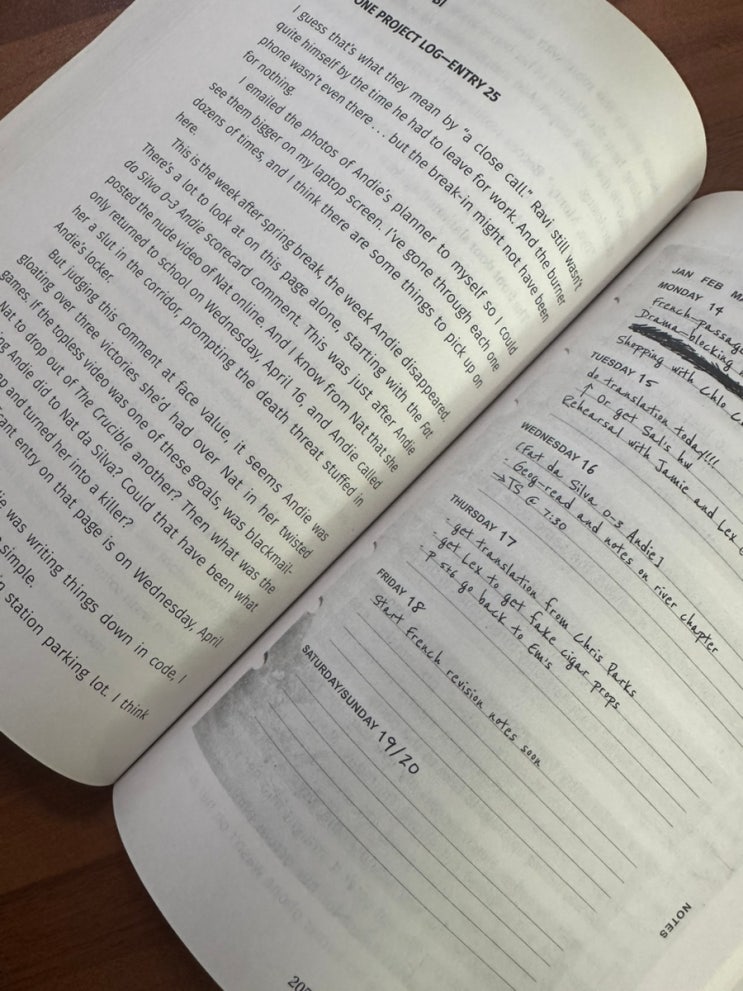 ONE PROJECT LOG—ENTRY 25
I guess that's what they mean by "a close call." Ravi still wasn't
quite himself by the time he had to leave for work. And the burner
phone wasn't even there . . . but the break-in might not have been
for nothing.
I emailed the photos of Andie's planner to myself so I could
see them bigger on my laptop screen. I've gone through each one
dozens of times, and I think there are some things to pick up on
here.
This is the week after spring break, the week Andie disappeared.
There's a lot to look at on this page alone, starting with the Fat
da Silva 0–3 Andie scorecard comment. This was just after Andie
posted the nude video of Nat online. And I know from Nat that she
only returned to school on Wednesday, April 16, and Andie called
her a slut in the corridor, prompting the death threat stuffed in
Andie's locker.
But judging this comment at face value, it seems Andie was
gloating over three victories she'd had over Nat in her twisted
games. If the topless video was one of these goals, was blackmail-
Nat to drop out of The Crucible another? Then what was the
ng Andie did to Nat da Silva? Could that have been what
p and turned her into a killer?
ant entry on that page is on Wednesday, April
ie was writing things down in code, I
simple.
station parking lot. I think
JAN FEB
MONDAY 14
French-passage
Drama-blocking
Shopping with Chlo
TUESDAY 15
do translation today!!!
↑ Or get Sal's hw
Rehearsal with Jamie and Lex
WEDNESDAY 16
[Fat da Silva 0-3 Andie]
· Geog-read and notes on river chapter
→ TS @ 7:30
THURSDAY 17
- get translation from Chris Parks
- get Lex to get fake cigar props
- P 5+6 go back to Em's
FRIDAY 18
Start French revision notes soon
SATURDAY/SUNDAY 19/20
NOTES
205